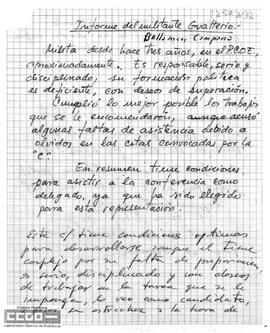 Informe del militante Gualterio.-
Milita desde hace tres años, en el P.C.D.E,
aproximadamente. Es responsable, serio y
disciplinado, su formación política
es deficiente, con deseos de superación.
Cumplió lo mejor posible los trabajos
que se le encomendaron, aunque acusó
algunas faltas de asistencia debido a
olvidos en las citas convocadas por la
"C".
En resumen tiene condiciones
para asistir a la conferencia como
delegado, ya que ha sido elegido
para esta representación.
Este c/ tiene condiciones optimas
para desarrollarse aunque el tiene
complejo por su falta de preparación,
es serio, disciplinado y con deseos
de trabajar en la tarea que se le
imponga, lo veo como candidato,
a la hora de